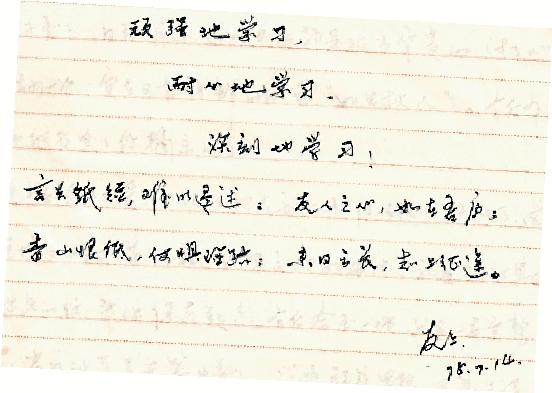 顽强地学习,
耐心地学习.
深刻地学习!
言长纸短,难以尽述: 友人之心,如在吾
青山恨低,何惧 来日方长,志上征途。
友上.
75.7.14.